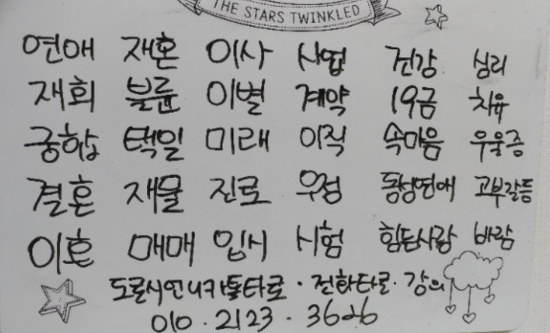 THE STARS TWINKLED
연애 재혼 이사 사업 건강 심리
재회 불륜 이별 계약 19금 치유
궁합 택일 미래 이직 속마음 우울증
결혼 재물 진로 우정 동성연애 고부갈등
이혼 매매 입시 시험 힘든사랑 바람
도론시언니카톨타로·전화타로·강의
010·2123·3626